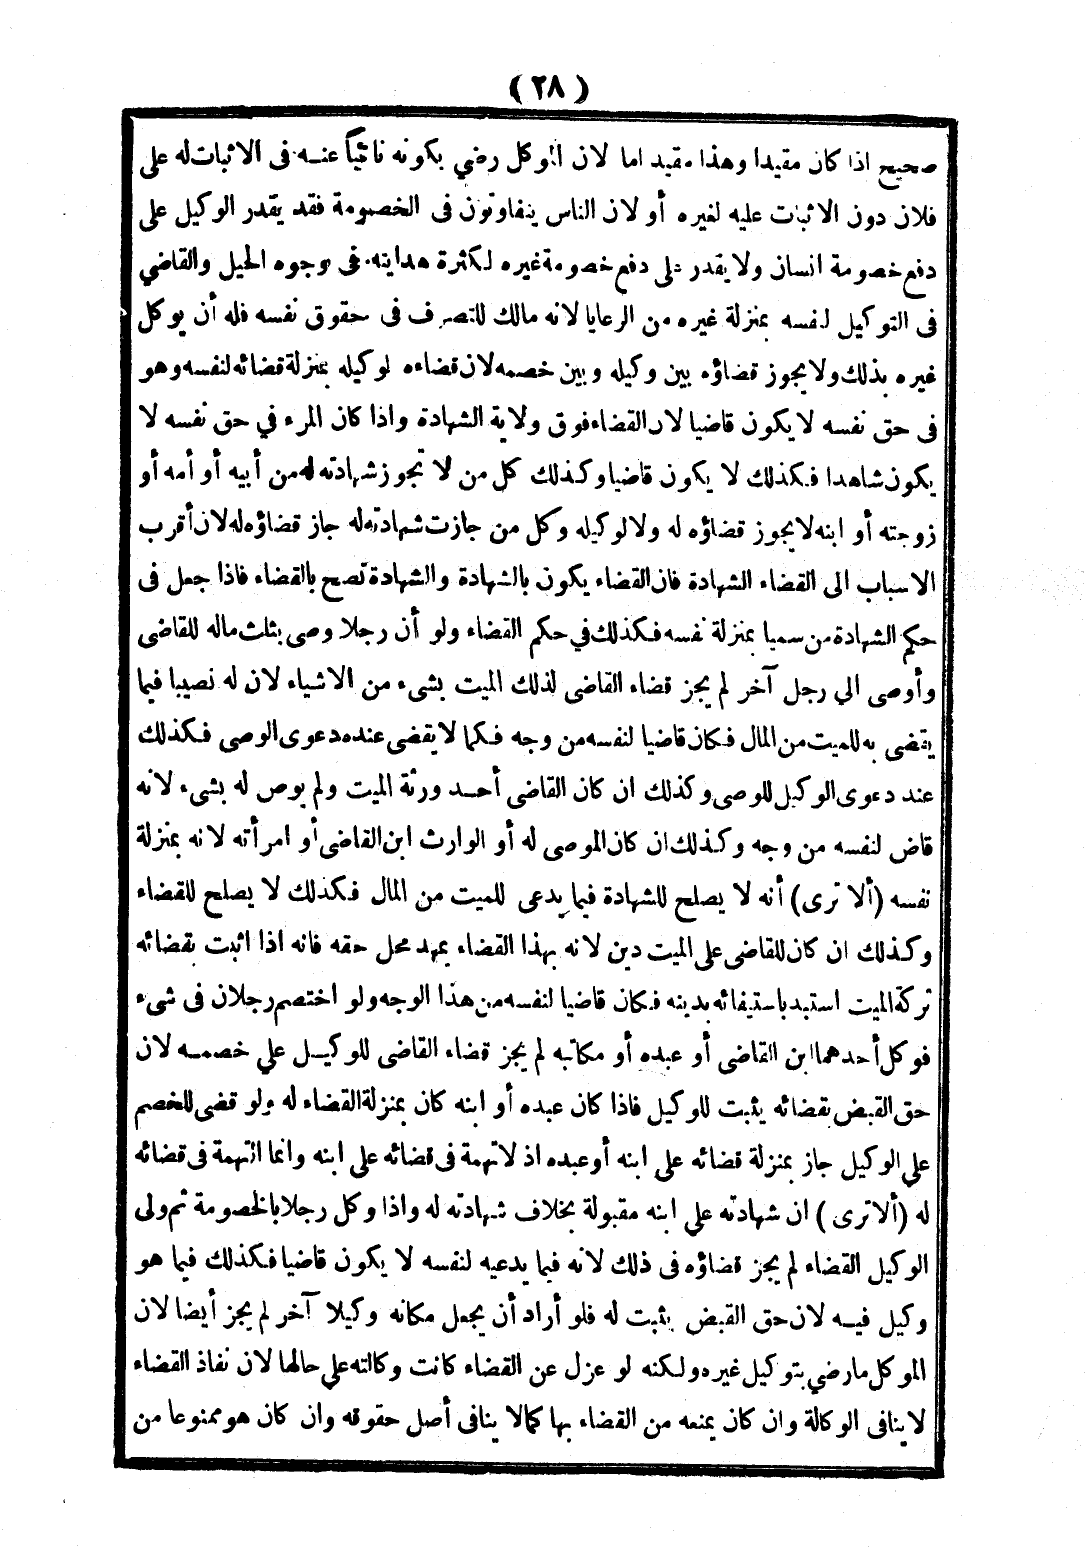 (٢٨)
صحيح اذا كان مقيدا وهذا مقيد اما لان الموكل رضي بكونه نائباً عنه فى الاثبات له علي
فلان دون الاثبات عليه لغيره أو لان الناس يتفاوتون فى الخصومة فقد يقدر الوكيل على
دفع خصومة انسان ولا يقدر على دفع خصومة غيره لكثرة هدايته فى وجوه الحيل والقاضي
فى التوكيل لنفسه بمنزلة غيره من الرعايا لانه مالك للتصرف فى حقوق نفسه فله أن يوكل
غيره بذلك ولا يجوز قضاؤه بين وكيله وبين خصمه لان قضاءه لوكيله بمنزلة قضائه لنفسه وهو
فى حق نفسه لا يكون قاضيا لان القضاء فوق ولاية الشهادة واذا كان المرء في حق نفسه لا
يكون شاهدا فكذلك لا يكون قاضيا وكذلك كل من لا تجوز شهادته له من أبيه أو أمه أو
زوجته أو ابنه لا يجوز قضاؤه له ولا لوكيله وكل من جازت شهادته له جاز قضاؤه له لان أقرب
الاسباب الى القضاء الشهادة فان القضاء يكون بالشهادة والشهادة تصح بالقضاء فاذا جعل فى
حكم الشهادة من سمينا بمنزلة نفسه فكذلك في حكم القضاء ولو أن رجلا وصى بثلث ماله للقاضى
وأوصى الي رجل آخر لم يجز قضاء القاضى لذلك الميت بشىء من الاشياء لان له نصيبا فيما
يقضى به للميت من المال فكان قاضيا لنفسه من وجه فكما لا يقضى عنده دعوى الوصى فكذلك
عند دعوى الوكيل للوصى وكذلك ان كان القاضى أحد ورثة الميت ولم يوص له بشىء لانه
قاض لنفسه من وجه وكذلك ان كان الموصى له أو الوارث ابن القاضى أو امرأته لانه بمنزلة
نفسه (ألا ترى) أنه لا يصلح للشهادة فيما يدعى للميت من المال فكذلك لا يصلح للقضاء
وكذلك ان كان للقاضى على الميت دين لانه بهذا القضاء يمهد محل حقه فانه اذا اثبت بقضائه
تركة الميت استبد باستيفائه بدينه فكان قاضيا لنفسه من هذا الوجه ولو اختصم رجلان فى شىء
فوكل أحدهما ابن القاضى أو عبده أو مكاتبه لم يجز قضاء القاضى للوكيل علي خصمه لان
حق القبض بقضائه يثبت للوكيل فاذا كان عبده أو ابنه كان بمنزلة القضاء له ولو قضى للخصم
علي الوكيل جاز بمنزلة قضائه علي ابنه أو عبده اذ لا تهمة فى قضائه علي ابنه وانما التهمة فى قضائه
له (ألا ترى) ان شهادته علي ابنه مقبولة بخلاف شهادته له واذا وكل رجلا بالخصومة ثم ولى
الوكيل القضاء لم يجز قضاؤه فى ذلك لانه فيما يدعيه لنفسه لا يكون قاضيا فكذلك فيما هو
وكيل فيه لان حق القبض يثبت له فلو أراد أن يجعل مكانه وكيلا آخر لم يجز أيضا لان
الموكل مارضي بتوكيل غيره ولكنه لو عزل عن القضاء كانت وكالته علي حالها لان نفاذ القضاء
لا ينافى الوكالة وان كان يمنعه من القضاء بها كما لا ينافى أصل حقوقه وان كان هو ممنوعا من